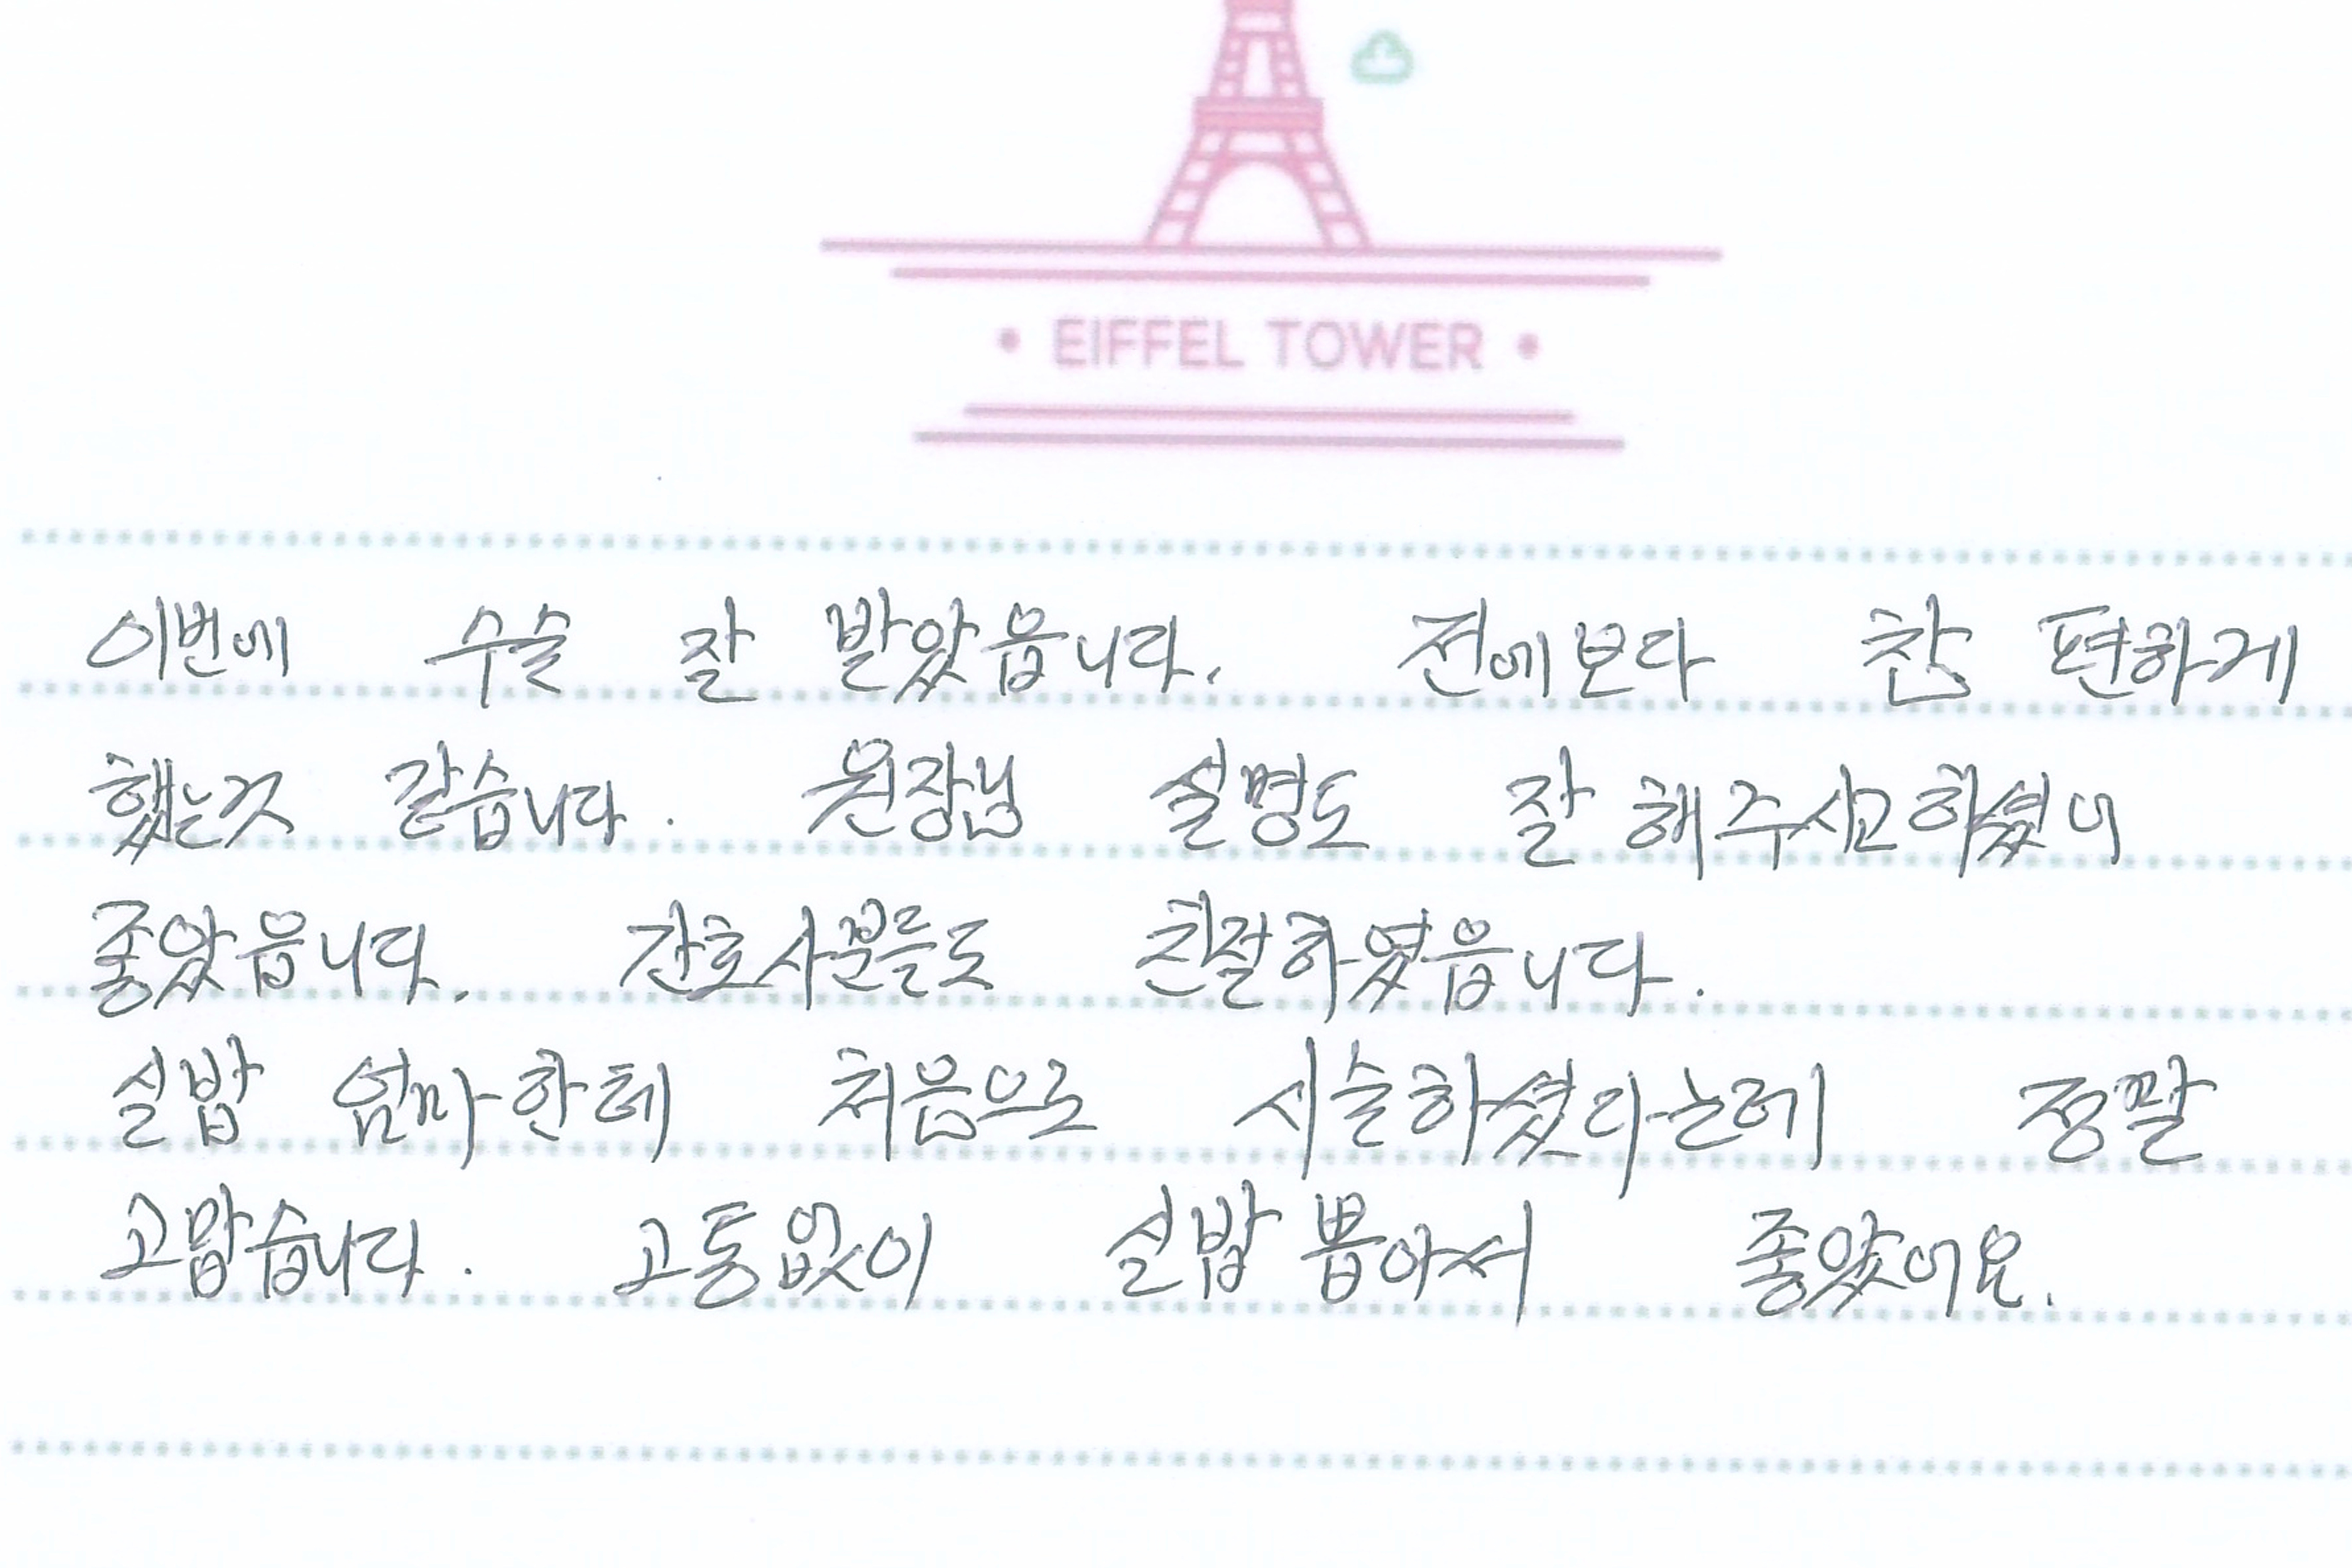 EIFFEL TOWER
이번에 수술 잘 받았읍니다. 전에보다 참 편하게
했는것 같습니다. 원장님 설명도 잘 해주시고하셨니
좋았읍니다. 간호사분들도 친절하였읍니다.
실밥 엄마한테 처음으로 시술하셨다는레 정말
고맙습니다. 고통없이 실밥 뽑아서 좋았어요.